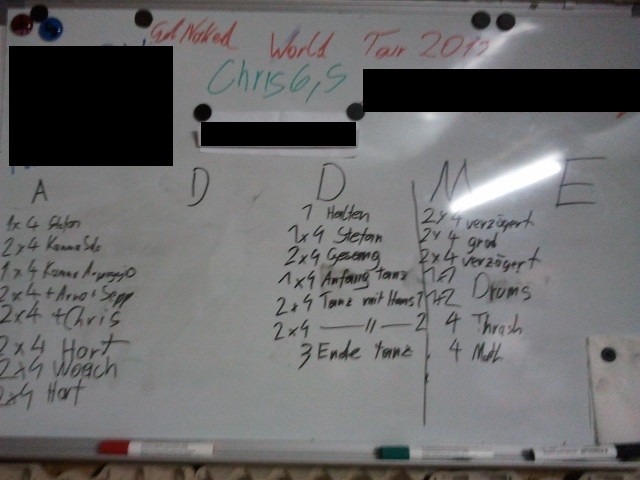 Get Naked World Tour 2013
Chris 6,5
A D D M E
1x4 Stefan
2x4 Kanna Solo
1x4 Kanna Arpeggio
2x4 + Arno + Sepp
2x4 + Chris
2x4 Hort
2x4 Woach
2x4 Hort
1 Halten
1x4 Stefan
2x4 Gesang
1x4 Anfang Tanz
2x4 Tanz mit Hans?
2x4 —— 11 —— 2
3 Ende Tanz
2x4 verzögert
2x4 grad
2x4 verzögert
1x1
1x2 Drums
4 Thrash
4 Muth